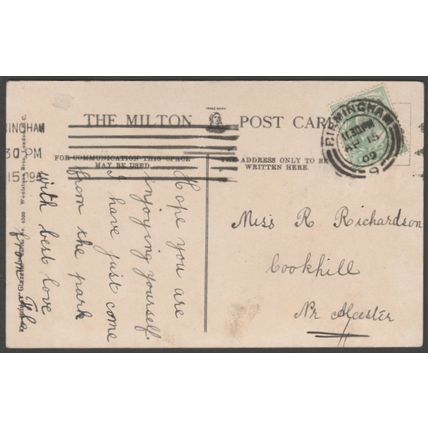 THE MILTON POST CARD
FOR COMMUNICATION THIS SPACE
MAY BE USED
THE ADDRESS ONLY TO BE
WRITTEN HERE.
BIRMINGHAM
11.30PM
AP 15
09
NINGHAM
30 PM
15 1909
Hope you are
enjoying yourself
I have just come
from the park
with best love
from
Miss R Richardson
Cookhill
Nr Alcester